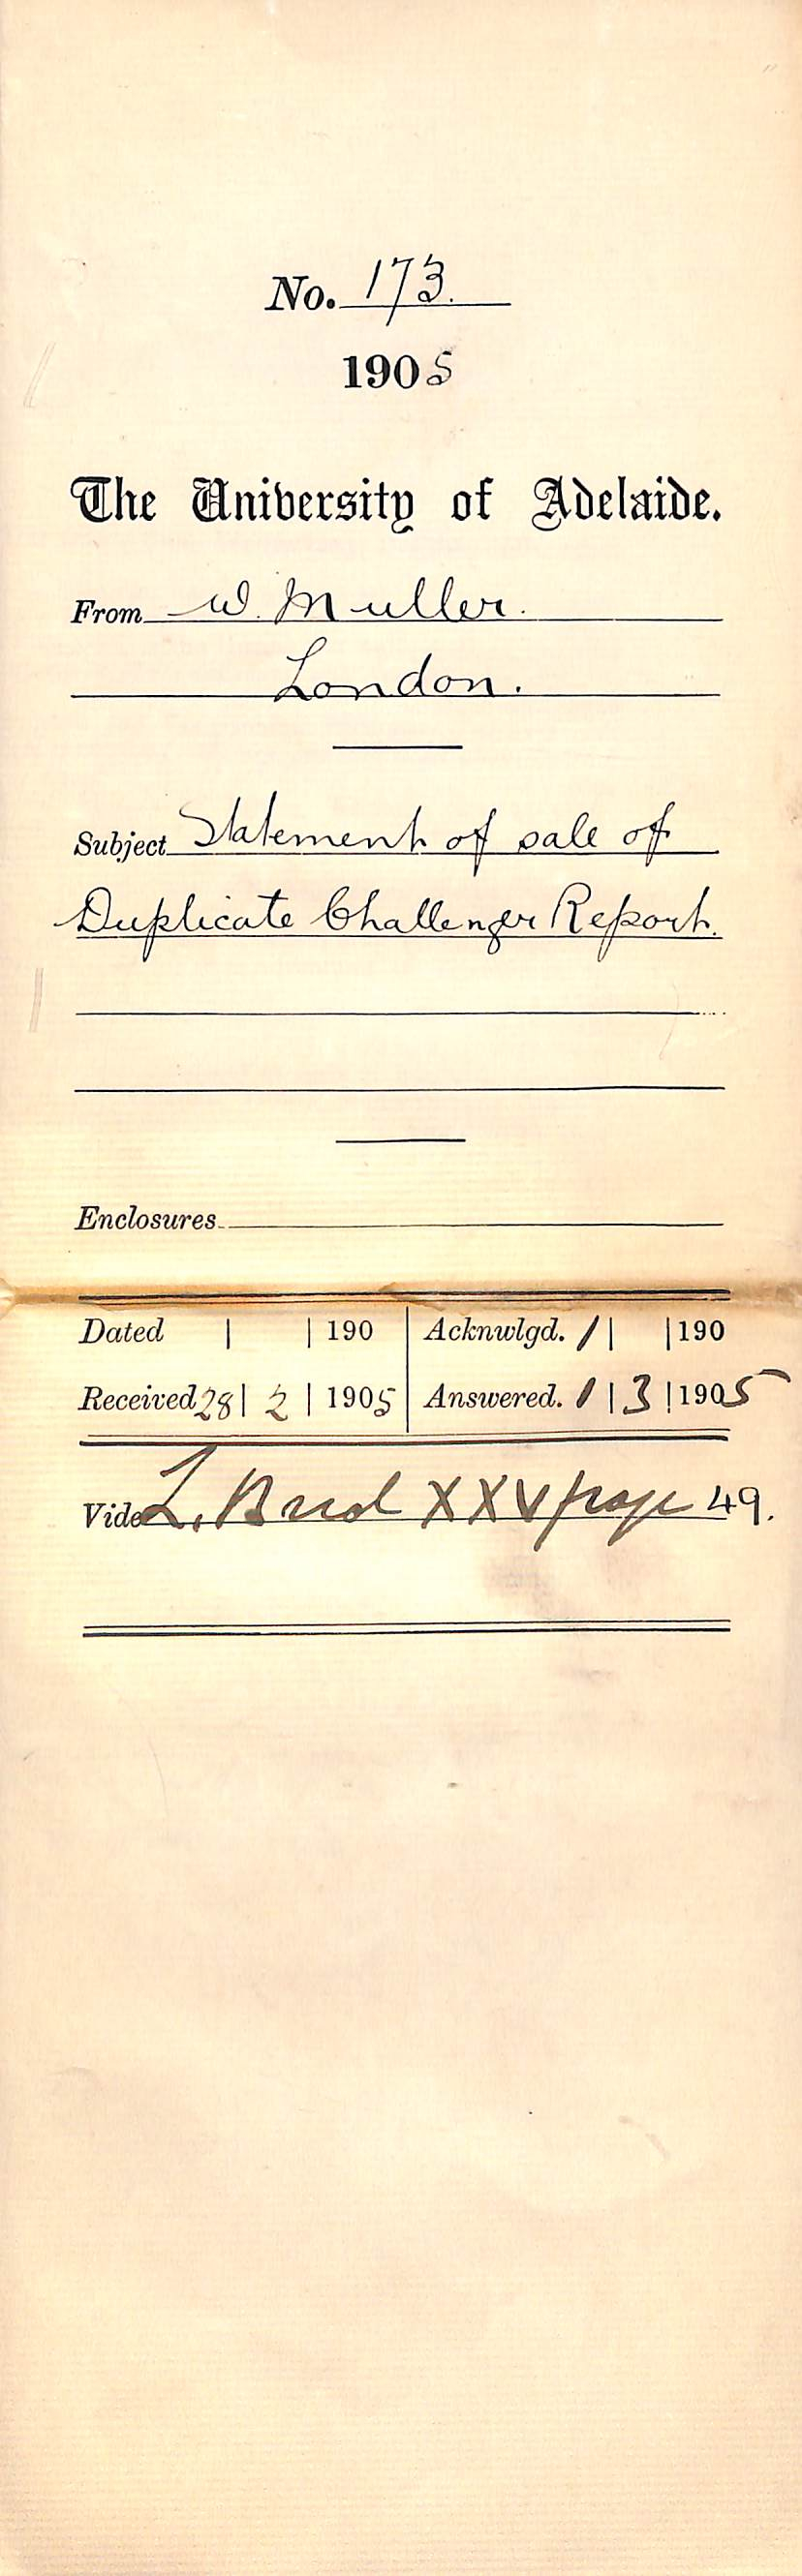 No. 173.
1905
The University of Adelaide.
From W. Muller.
London.
Subject Statement of sale of
Duplicate Challenger Report.
Enclosures
Dated | | 190 Acknwlgd. / | | 190
Received 28 | 2 | 1905 Answered. 1 | 3 | 1905
Vide L. XXV page 49.